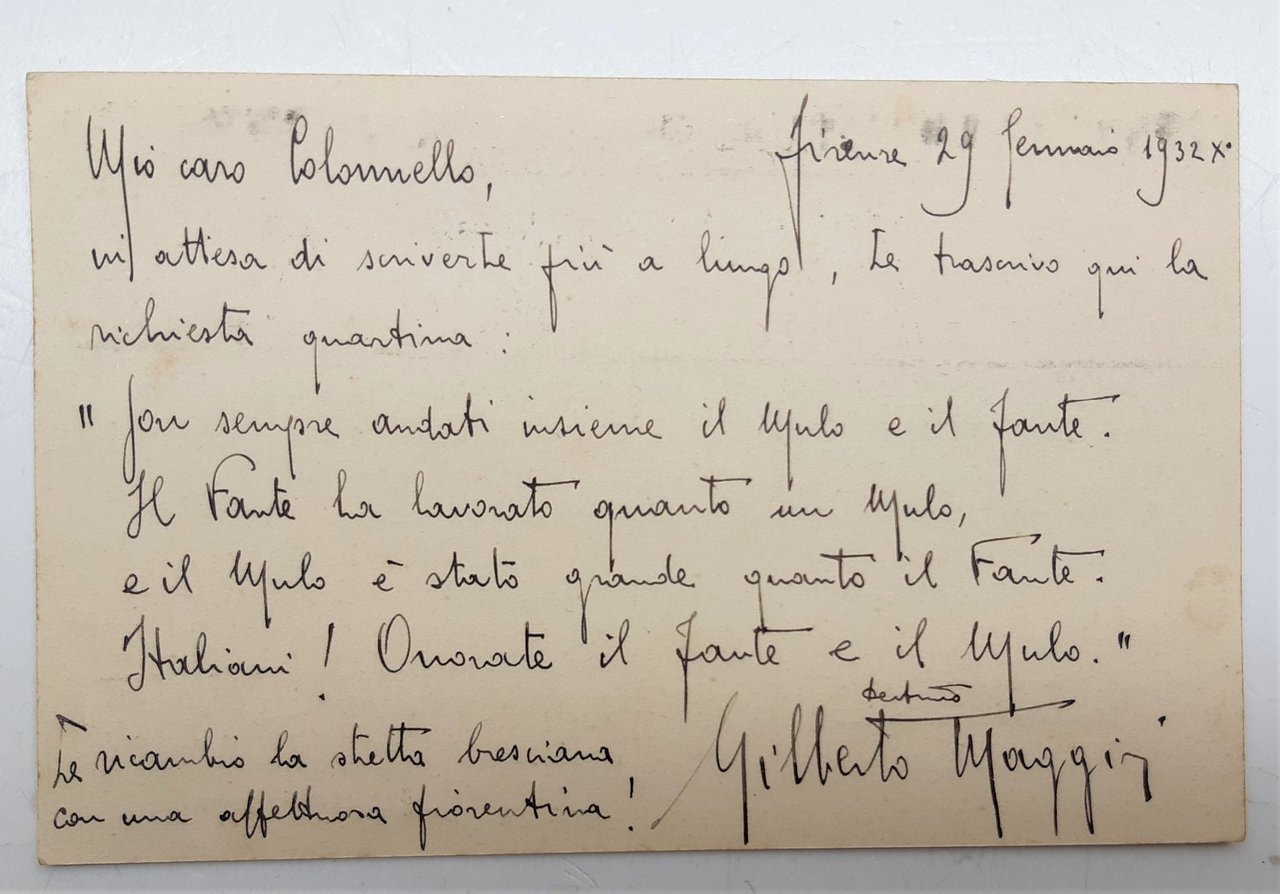 Firenze 29 Gennaio 1932 X°
Mio caro Colonnello,
in attesa di scriverti più a lungo, te trascrivo qui la
richiesta quartina:
" Son sempre andati insieme il Mulo e il Fante.
Il Fante ha lavorato quanto un Mulo,
e il Mulo è stato grande quanto il Fante.
Italiani! Onorate il Fante e il Mulo."
Te ricambio la stretta bresciana,
con una affettuosa fiorentina!
Gilberto Maggi